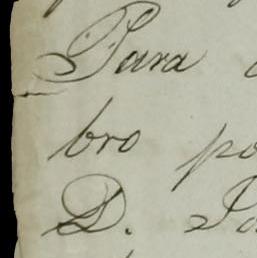 Para
bro po
D. Jo